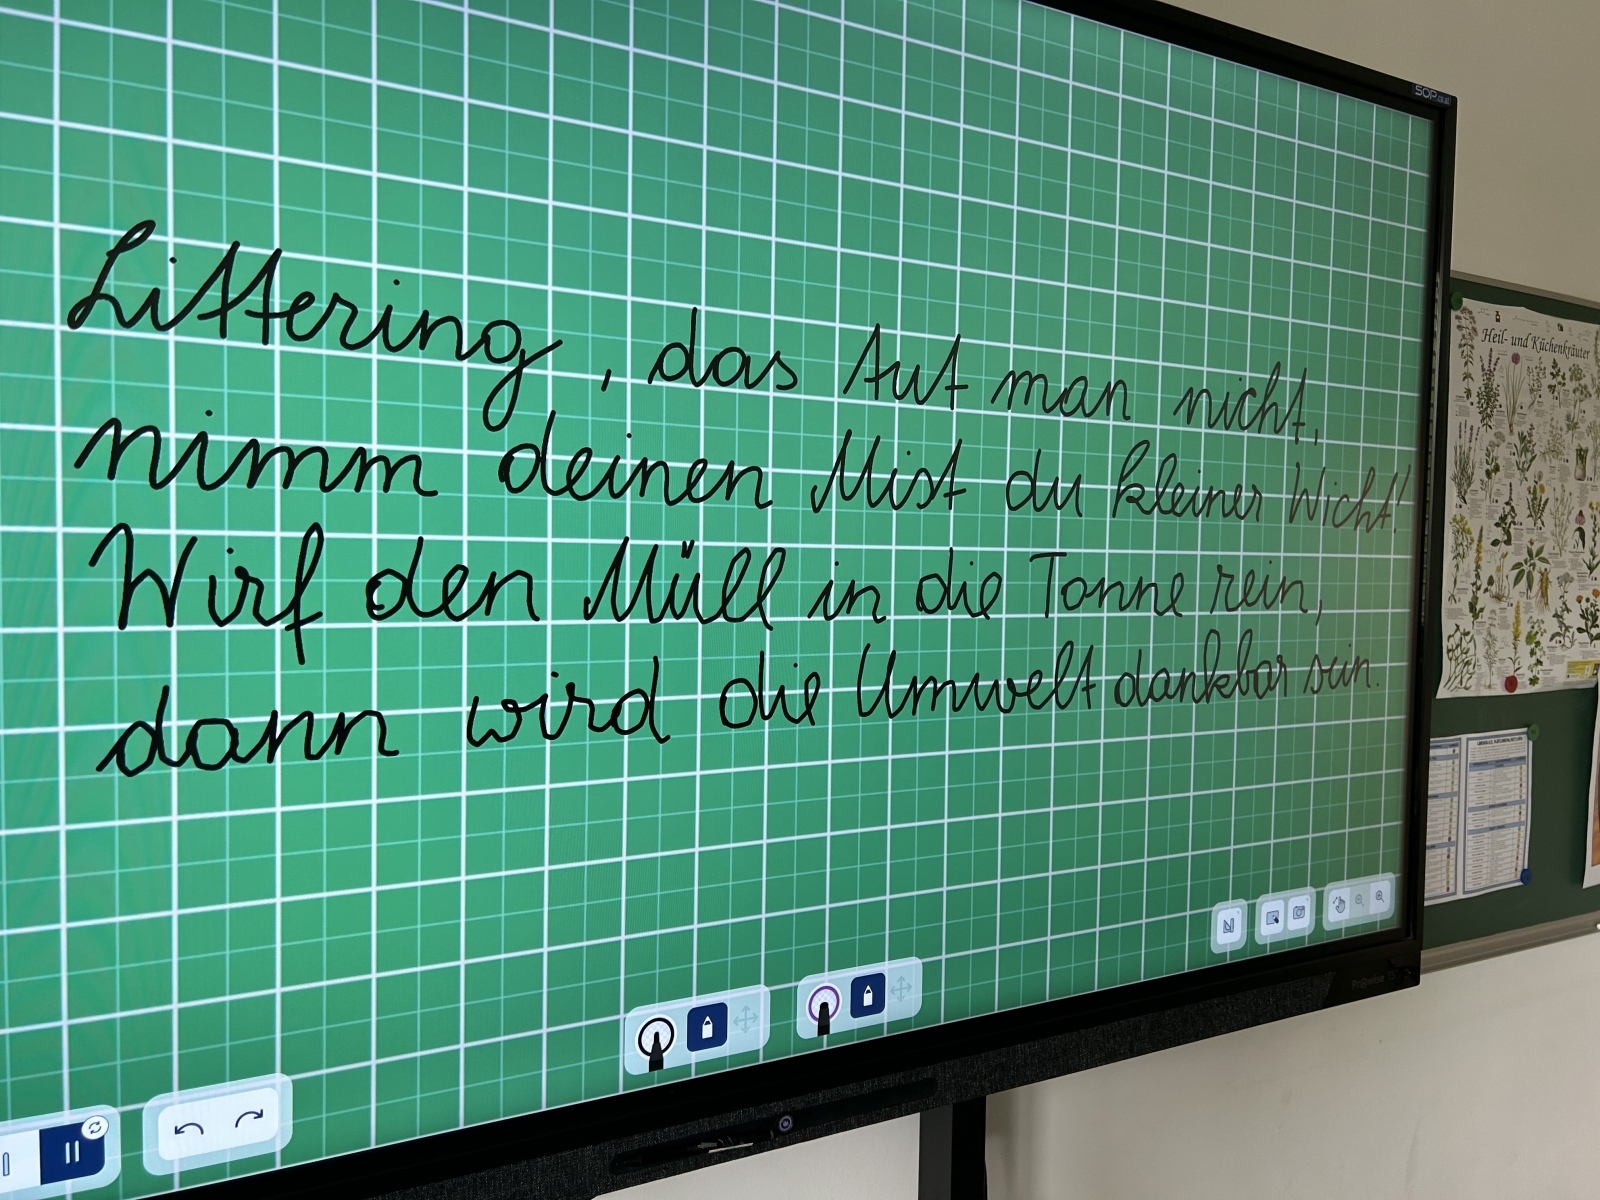 Littering, das tut man nicht,
nimm deinen Mist du kleiner Wicht!
Wirf den Müll in die Tonne rein,
dann wird die Umwelt dankbar sein.
SOP
Heil- und Küchenkräuter